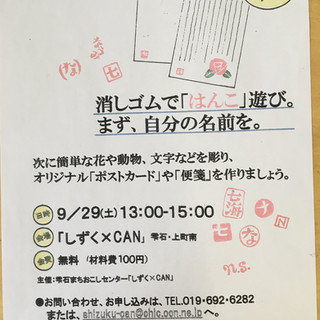 消しゴムで「はんこ」遊び。
まず、自分の名前を。
次に簡単な花や動物、文字などを彫り、
オリジナル「ポストカード」や「便箋」を作りましょう。
日時 9/29(土) 13:00-15:00
会場 「しずく×CAN」 雫石・上町南
会費 無料 (材料費100円)
主催:雫石まちおこしセンター「しずく×CAN」
七海
ナ
N
七
な
n.s.
(な)
七
●お問い合わせ、お申し込みは、TEL.019-692-6282
または、shizuku-can@chic.ocn.ne.jpへ。